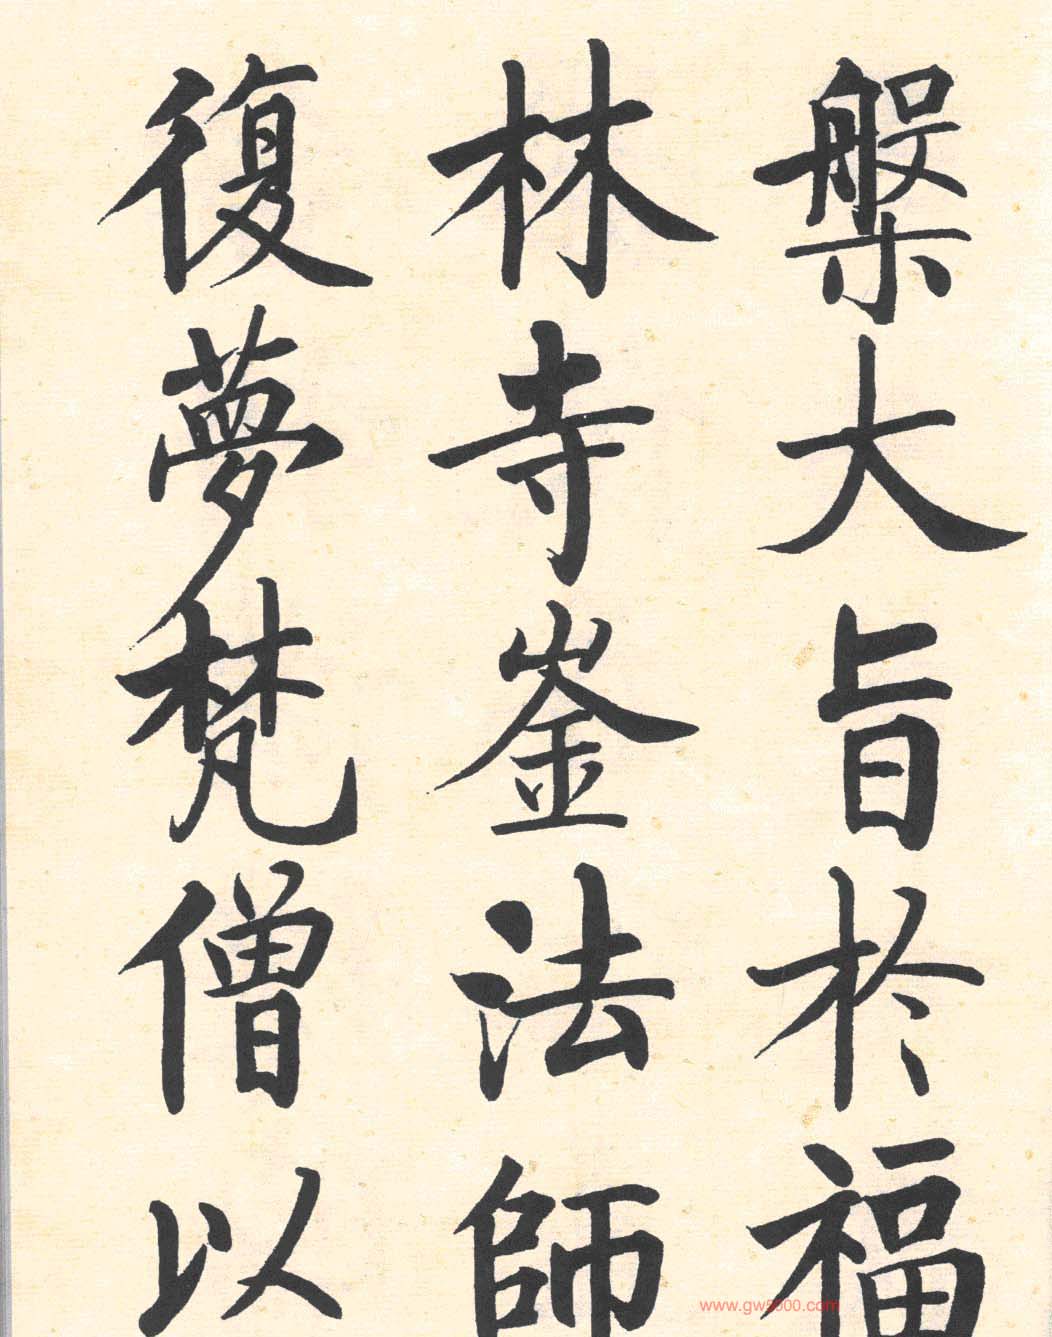 槃大旨於福
林寺崟法師
復夢梵僧以
www.gw5000.com